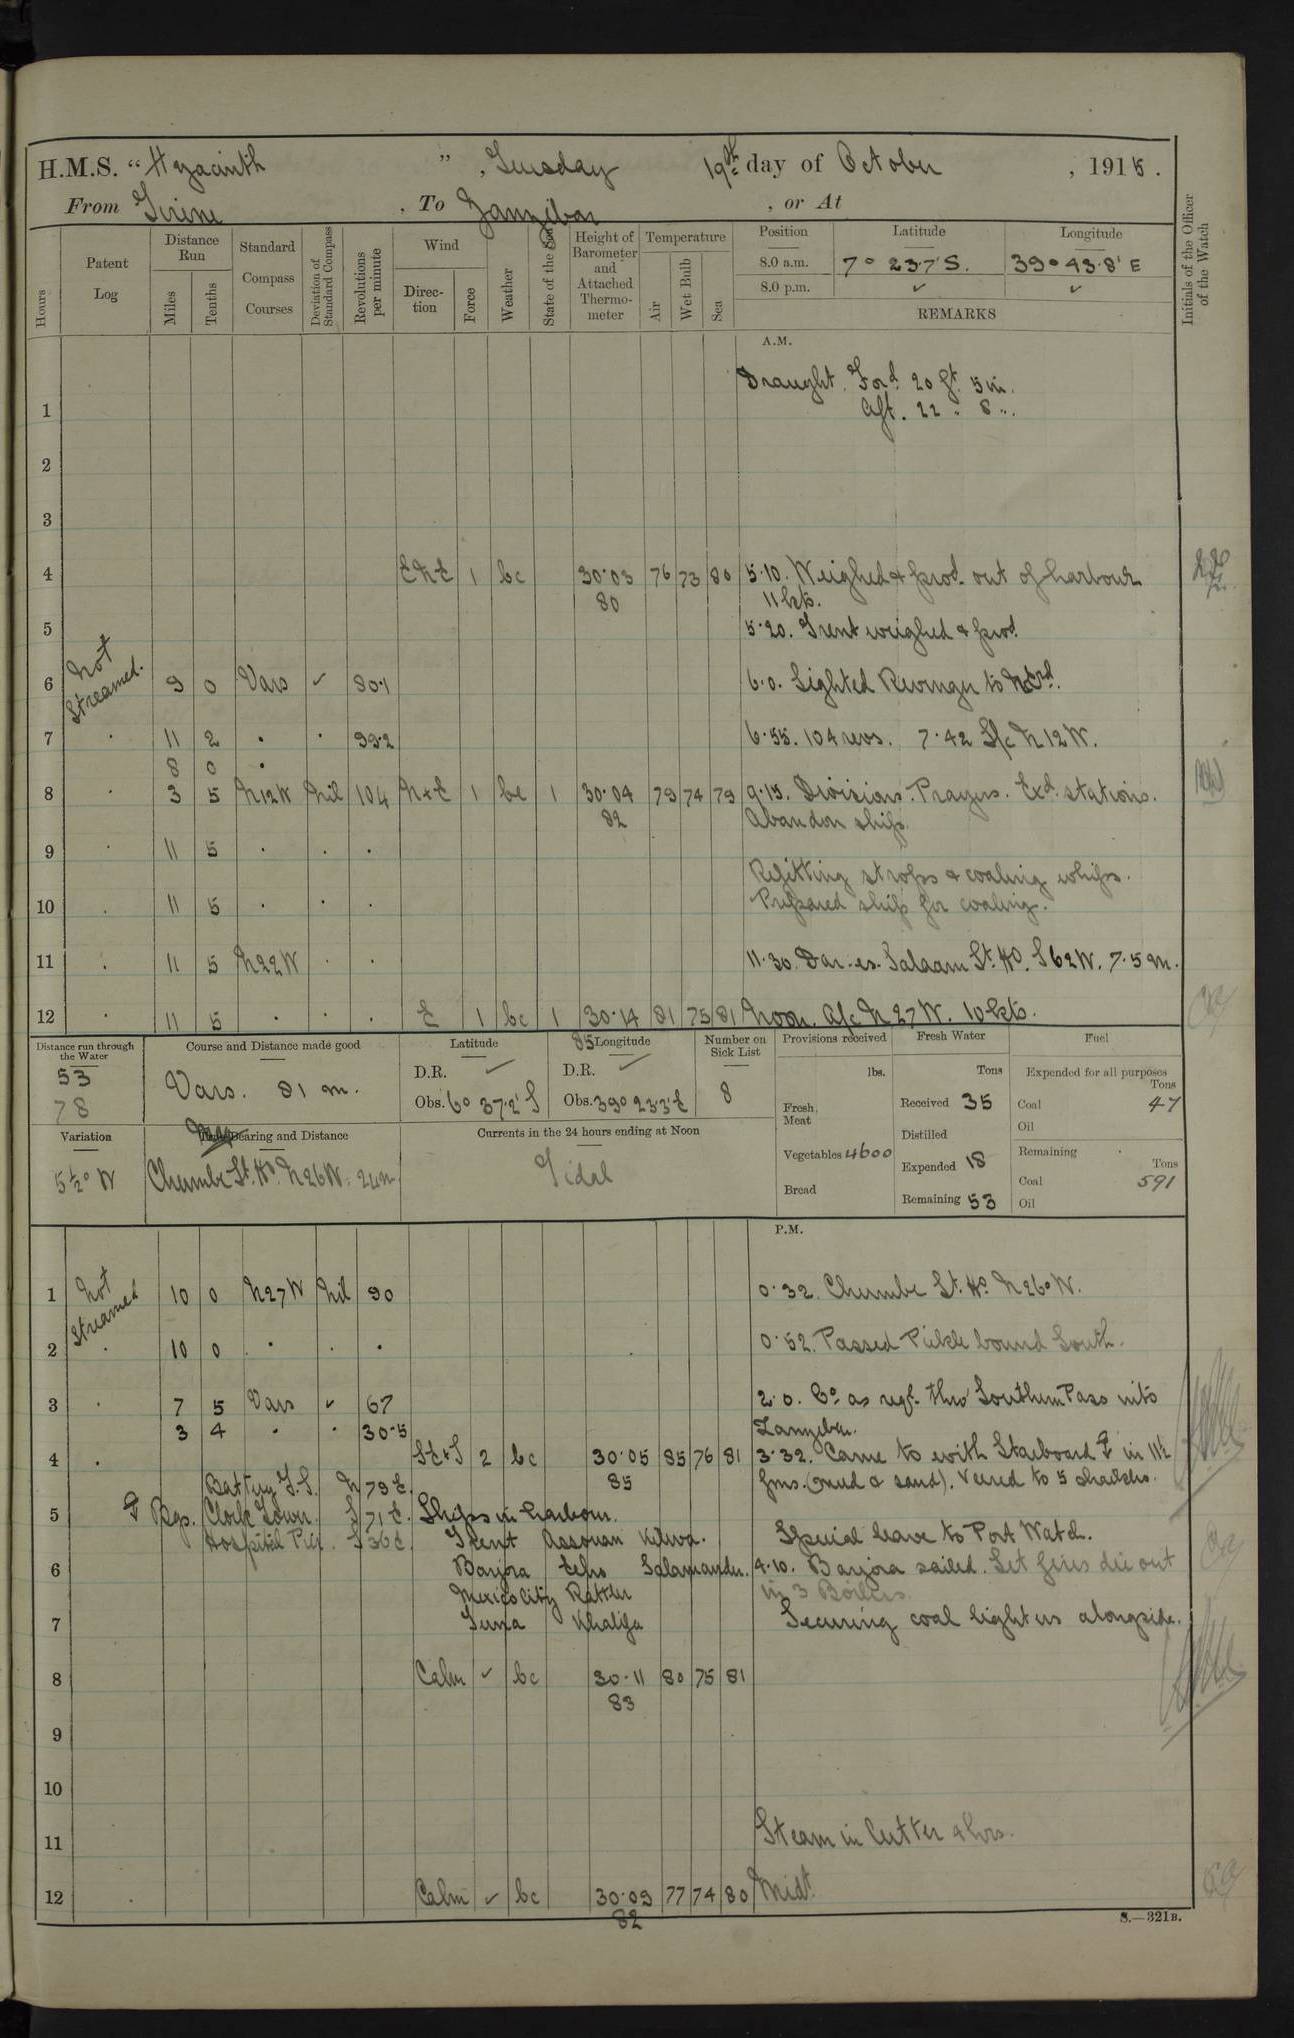 H.M.S. "Hyacinth", Tuesday 19th day of October, 1915.
From Tirene, To Zanzibar, or At
Hours
Patent Log
Distance Run
Miles
Tenths
Standard Compass Courses
Deviation of Standard Compass
Revolutions per minute
Wind
Direction
Force
Weather
State of the Sea
Height of Barometer and Attached Thermometer
Temperature
Air
Wet Bulb
Sea
Position
Latitude
Longitude
8.0 a.m. 7° 23·7' S. 39° 43·8' E
8.0 p.m. ✓ ✓
REMARKS
Initials of the Officer of the Watch
A.M.
Draught. For'd 20 ft. 5 in.
Aft. 22 " 8 "
1
2
3
4 ENE 1 bc 30·03 76 73 80 5·10. Weighed & proc'd. out of harbour
80 11 kts.
5 5·20. Trent weighed & proc'd
Not Streamed.
6 9 0 Vars ✓ 80·1 6·0. Sighted Revenger to N'E'rd.
7 " 11 2 " " 99·2 6·55. 104 revs. 7·42 S/c N12W.
8 0 "
8 " 3 5 N12W Nil 104 N×E 1 bc 1 30·04 79 74 79 9·15. Divisions. Prayers. Ex'd. stations.
82 Abandon ship.
9 " 11 5 " " "
Refitting strops & coaling whips.
10 " 11 5 " " " Prepared ship for coaling.
11 " 11 5 N22W " " 11·30. Dar-es-Salaam Lt. Ho. S62W. 7·5 m.
12 " 11 5 " " " E 1 bc 1 30·14 81 75 81 Noon. A/c N27W. 10 kts.
85
Distance run through the Water
53
78
Course and Distance made good
Vars. 81 m.
Latitude
D.R. ✓
Obs. 6° 37·2' S
Longitude
D.R. ✓
Obs. 39° 23·3' E
Number on Sick List
8
Provisions received
lbs.
Fresh Meat
Vegetables 4600
Bread
Fresh Water
Tons
Received 35
Distilled
Expended 18
Remaining 53
Fuel
Expended for all purposes
Tons
Coal 47
Oil
Remaining
Tons
Coal 591
Oil
Variation
5½° W
Bearing and Distance
Chumbe Lt. Ho. N26W. 24m
Currents in the 24 hours ending at Noon
Tidal
P.M.
Not Streamed
1 10 0 N27W Nil 90 0·32. Chumbe Lt. Ho. N26°W.
2 " 10 0 " " " 0·52. Passed Pickle bound South.
3 " 7 5 Vars ✓ 67 2·0. Co. as req. thro' Southern Pass into
3 4 " " 30·5 Zanzibar.
4 " SE×S 2 bc 30·05 85 76 81 3·32. Came to with Starboard ⚓ in 11½
85 fms. (mud & sand). Veered to 5 shackles.
Battery F.S. N79E.
5 ⚓ Bgs. Clock Tower. S71E. Ships in harbour.
Hospital Pier. S36E Trent Assouan Kilwa. Special leave to Port Watch.
6 Barjora Echo Salamander. 4·10. Barjora sailed. Let fires die out
Mexico City Rattler in 3 Boilers.
7 Tuna Khalifa Securing coal lighters alongside.
8 Calm ✓ bc 30·11 80 75 81
83
9
10
11 Steam in Cutter 4 hrs.
12 Calm ✓ bc 30·09 77 74 80 Mid't
82
S.—321B.